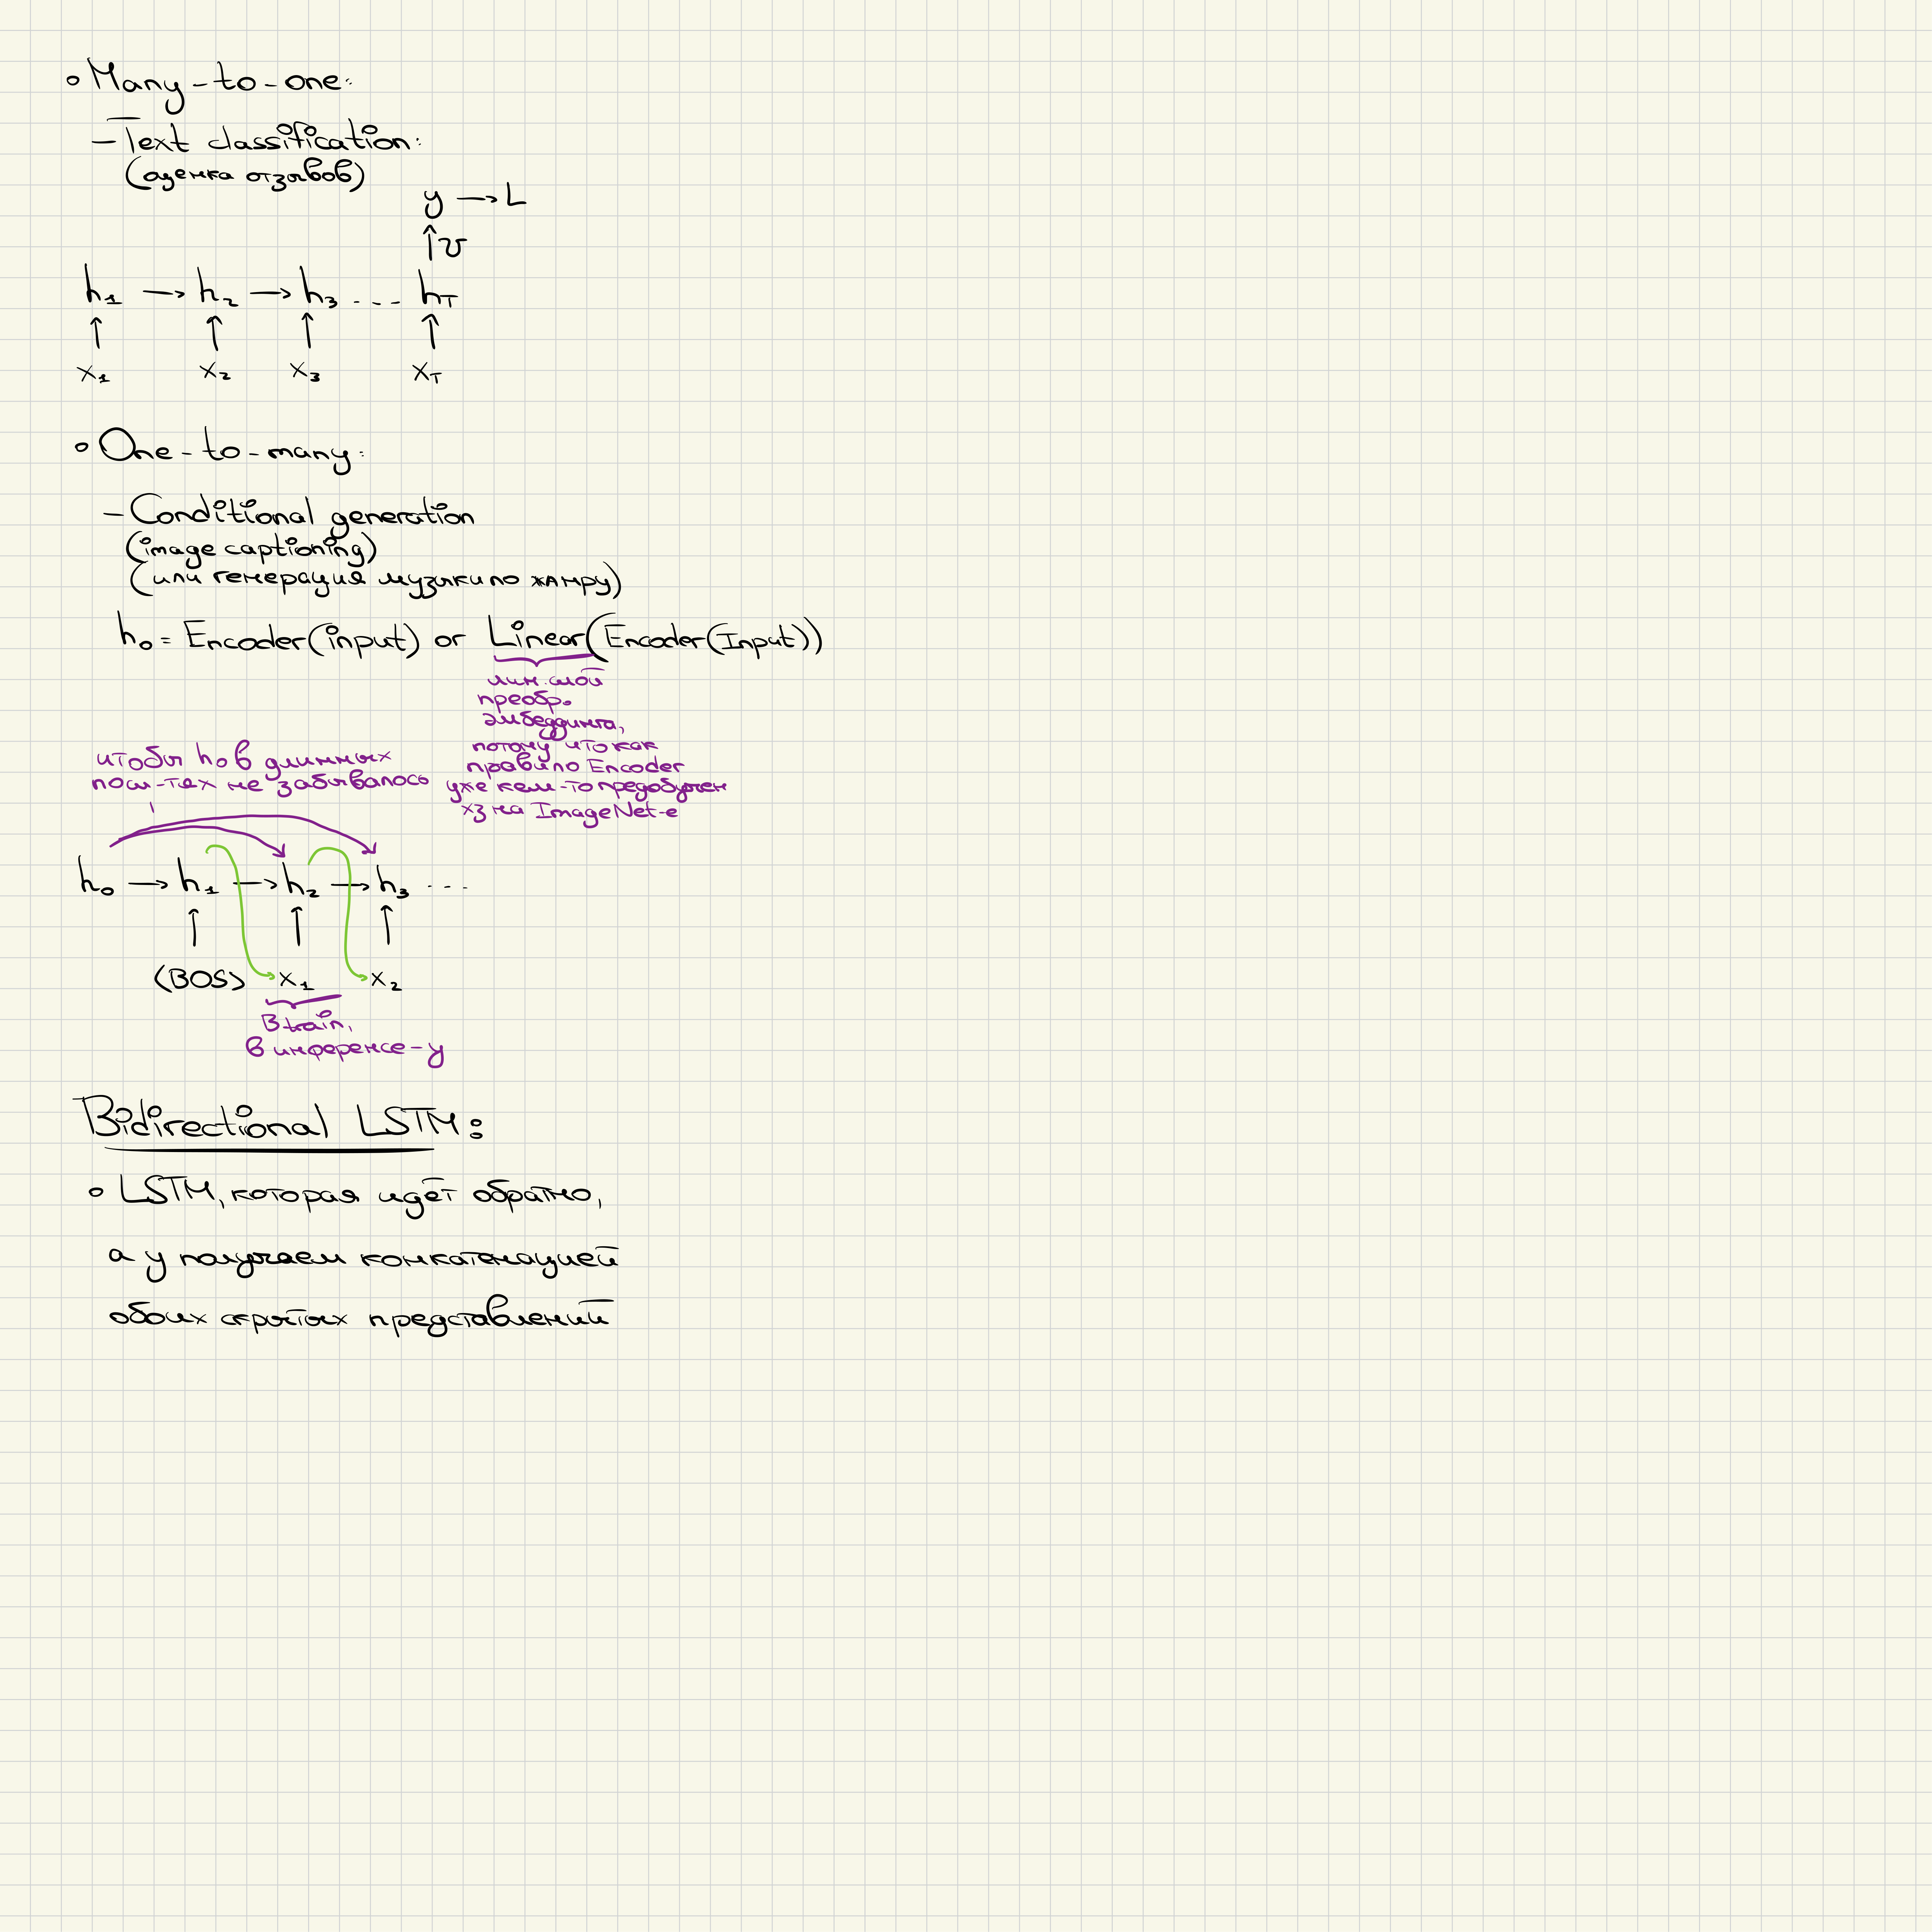 • Many-to-one:
– Text classification:
(оценка отзывов)
y → L
↑ V
h₁ → h₂ → h₃ ... h_T
↑ ↑ ↑ ↑
x₁ x₂ x₃ x_T
• One-to-many:
– Conditional generation
(image captioning)
(или генерация музыки по жанру)
h₀ = Encoder(input) or Linear(Encoder(Input))
лин. слой
преобр.
эмбеддинга,
потому что как
правило Encoder
уже кем-то предобучен
хз на ImageNet-е
чтобы h₀ в длинных
посл-тях не забывалось
h₀ → h₁ → h₂ → h₃ ...
↑ ↑ ↑
(BOS) x₁ x₂
В train,
в инференсе – y
Bidirectional LSTM:
• LSTM, которая идёт обратно,
а y получаем конкатенацией
обоих скрытых представлений